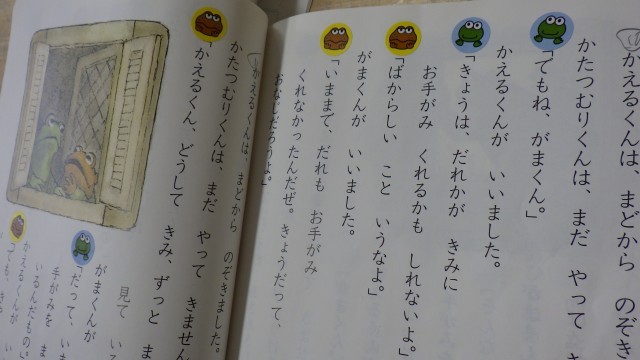 かえるくんは、まどから のぞき
かたつむりくんは、まだ やって
「でもね、がまくん。」
かえるくんが いいました。
「きょうは、だれかが きみに
お手がみ くれるかも しれないよ。」
「ばからしい こと いうなよ。」
がまくんが いいました。
「いままで、だれも お手がみ
くれなかったんだぜ。きょうだって、
おなじだろうよ。」
かえるくんは、まどから のぞきました。
かたつむりくんは、まだ やって きません
「かえるくん、どうして きみ、ずっと ま
見て い
がまくんが
「だって、い
手がみを
いるんだもの
かえるくんが
「でも、